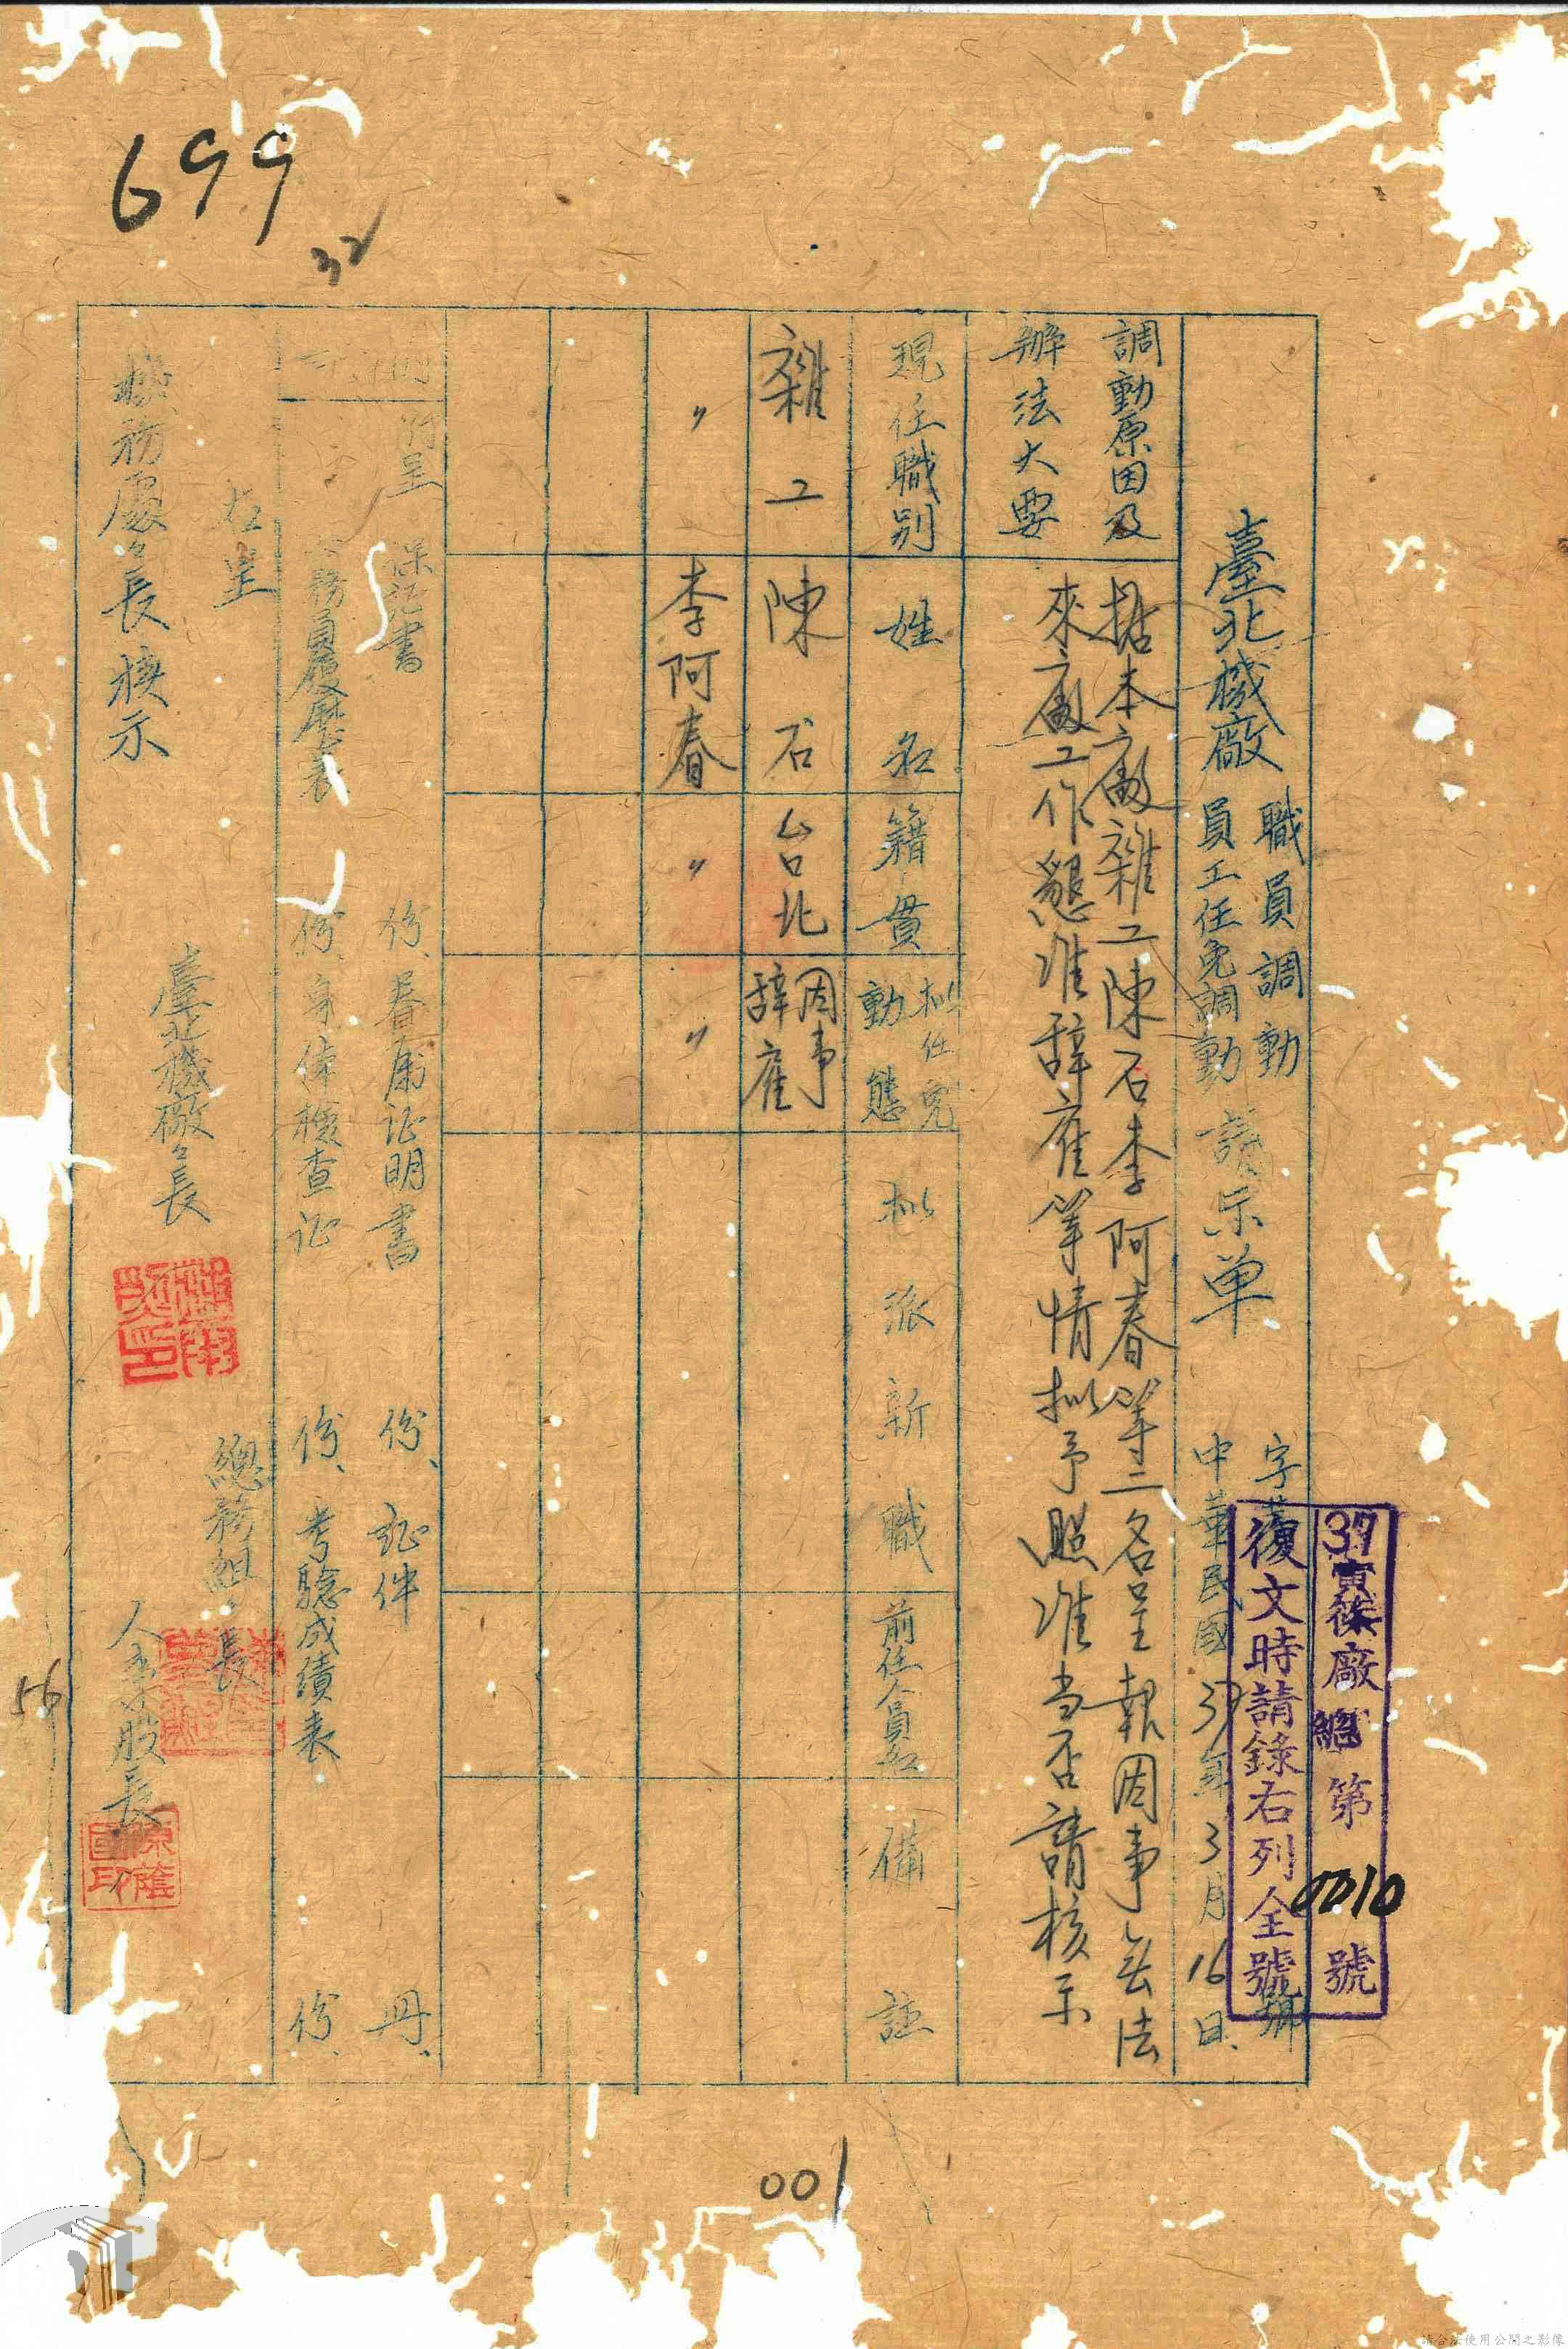 699
32
37寅 廠總第0010號
復文時請錄右列全號
字第 號
中華民國37年3月16日
臺北機廠 職員調動 員工任免調動 請示单
調動原因及
辦法大要
据本廠雜工陳石李阿春等二名呈報因事無法
來廠工作懇准辞雇等情拟予照准当否請核示
現任職別 姓名 籍貫 拟任免動態 拟派新職 前任人員名 備註
雜工 陳石 台北 因事辞雇
〃 李阿春 〃 〃
附呈 保証書 份、眷属证明書 份、証件 冊、
務員履歷表 份、身体檢查证 份、考驗成績表 份、
右呈
機務處處長核示
臺北機廠廠長
總務組組長
人事股股長
陳蔭國印
56
001
請合法使用公開之影像